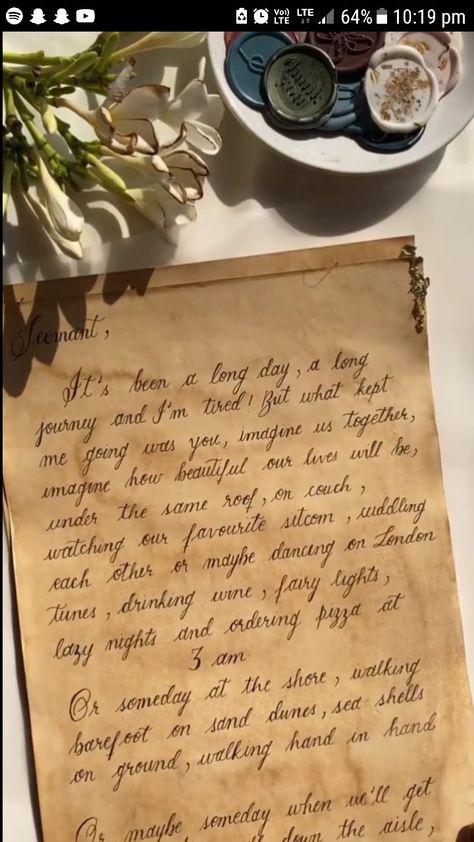 Vo)) LTE LTE 64% 10:19 pm
Seemant,
It's been a long day, a long
journey and I'm tired! But what kept
me going was you, imagine us together,
imagine how beautiful our lives will be,
under the same roof, on couch,
watching our favourite sitcom, cuddling
each other or maybe dancing on London
tunes, drinking wine, fairy lights,
lazy nights and ordering pizza at
3 am
Or someday at the shore, walking
barefoot on sand dunes, sea shells
on ground, walking hand in hand
Or maybe someday when we'll get
down the aisle,